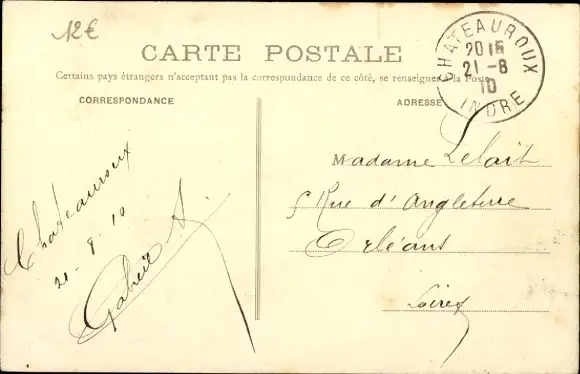 12€
CARTE POSTALE
Certains pays étrangers n'acceptant pas la correspondance de ce côté, se renseigner à la Poste
CORRESPONDANCE
ADRESSE
CHATEAUROUX
20 15
21 -8
10
INDRE
Châteauroux
21 . 8 . 10
Madame Lelait
5 Rue d'Angleterre
Orléans
Loiret